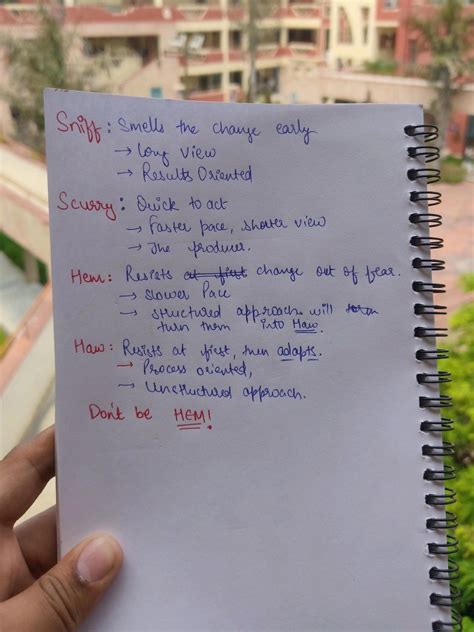 Sniff: Smells the change early
→ Long View
→ Results Oriented
Scurry: Quick to act
→ Faster pace, shorter view
→ The producer.
Hem: Resists at first change out of fear.
→ Slower Pace
→ Structured approach will turn
turn them into Haw.
Haw: Resists at first, then adapts.
→ Process oriented,
→ Unstructured approach.
Don't be HEM!